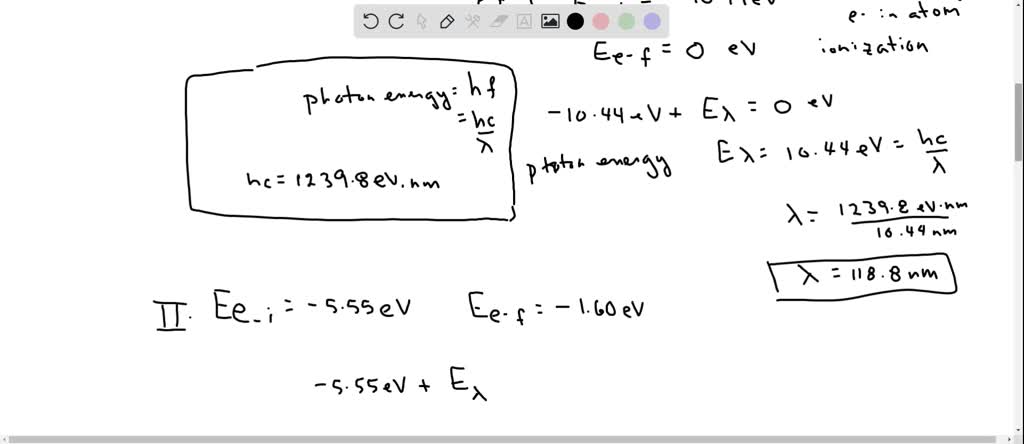 e- in atom
E e-f = 0 eV ionization
photon energy = hf
= hc/λ
hc = 1239.8 eV.nm
-10.44 eV + Eλ = 0 eV
photon energy Eλ = 10.44 eV = hc/λ
λ = 1239.8 eV.nm / 10.44 nm
λ = 118.8 nm
II. E e-i = -5.55 eV E e-f = -1.60 eV
-5.55 eV + Eλ